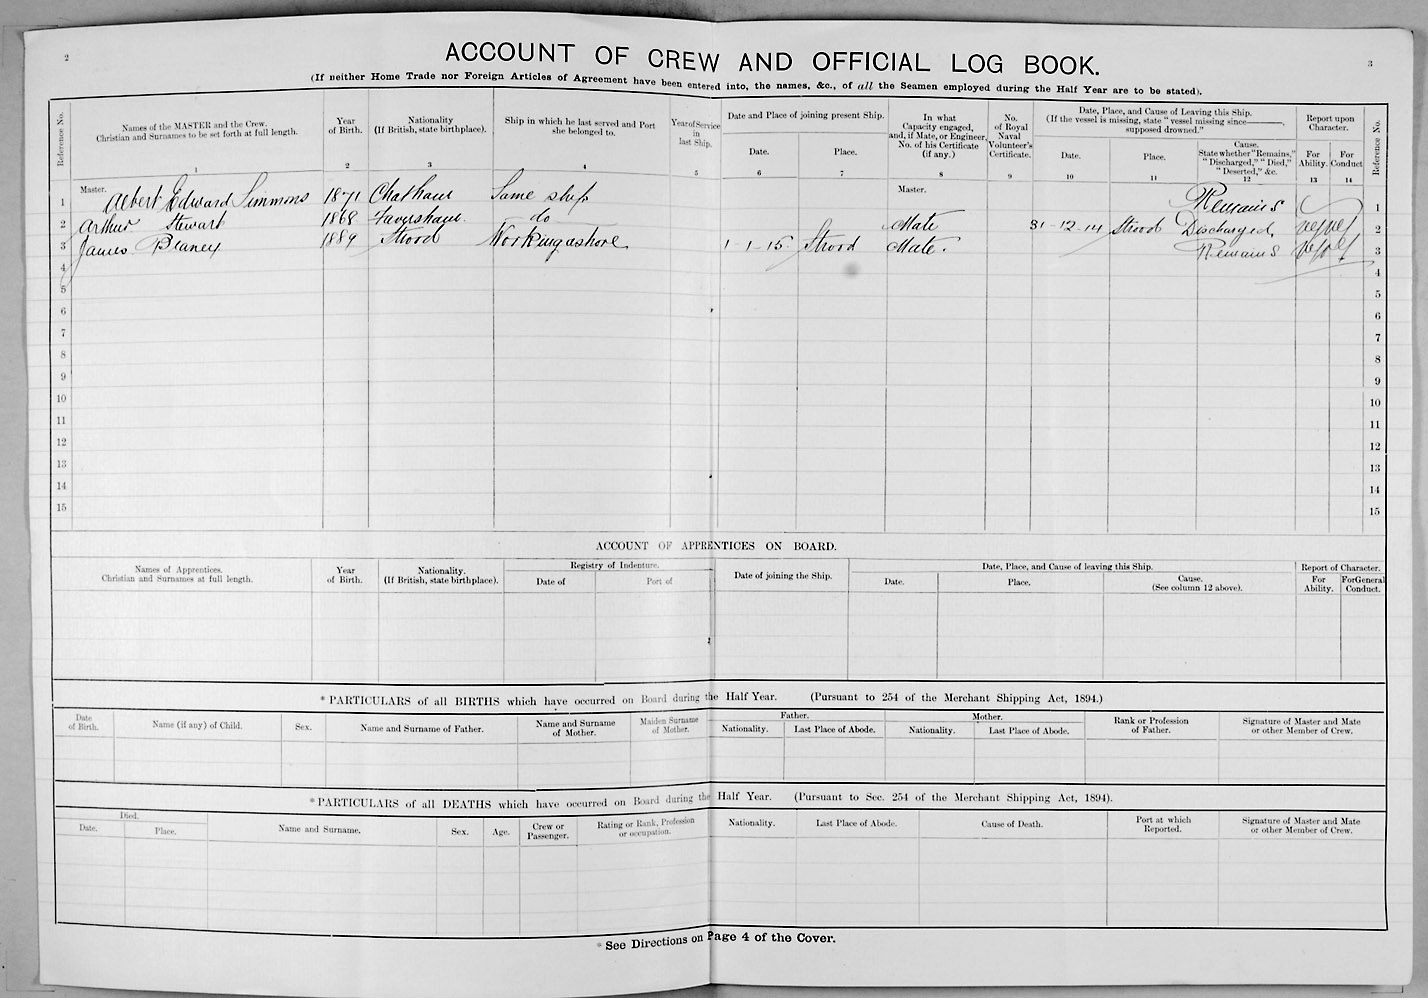 2
3
ACCOUNT OF CREW AND OFFICIAL LOG BOOK.
(If neither Home Trade nor Foreign Articles of Agreement have been entered into, the names, &c., of all the Seamen employed during the Half Year are to be stated).
Reference No.
Names of the MASTER and the Crew.
Christian and Surnames to be set forth at full length.
1
Year
of Birth.
2
Nationality
(If British, state birthplace).
3
Ship in which he last served and Port
she belonged to.
4
Year of Service
in
last Ship.
5
Date and Place of joining present Ship.
Date.
6
Place.
7
In what
Capacity engaged,
and, if Mate, or Engineer,
No. of his Certificate
(if any.)
8
No.
of Royal
Naval
Volunteer's
Certificate.
9
Date, Place, and Cause of Leaving this Ship.
(If the vessel is missing, state "vessel missing since———,
supposed drowned."
Date.
10
Place.
11
Cause.
State whether "Remains,"
"Discharged," "Died,"
"Deserted," &c.
12
Report upon
Character.
For
Ability.
13
For
Conduct
14
Reference No.
1 Master. Albert Edward Simmons 1871 Chatham Same ship Master. Remains 1
2 Arthur Stewart 1868 Faversham do Mate 31-12-14 Strood Discharged 2
3 James Blaney 1889 Strood Working ashore 1-1-15 Strood Mate. Remains 3
4 4
5 5
6 6
7 7
8 8
9 9
10 10
11 11
12 12
13 13
14 14
15 15
ACCOUNT OF APPRENTICES ON BOARD.
Names of Apprentices.
Christian and Surnames at full length.
Year
of Birth.
Nationality.
(If British, state birthplace).
Registry of Indenture.
Date of
Port of
Date of joining the Ship.
Date, Place, and Cause of leaving this Ship.
Date.
Place.
Cause.
(See column 12 above).
Report of Character.
For
Ability.
For General
Conduct.
*PARTICULARS of all BIRTHS which have occurred on Board during the Half Year. (Pursuant to 254 of the Merchant Shipping Act, 1894.)
Date
of Birth.
Name (if any) of Child.
Sex.
Name and Surname of Father.
Name and Surname
of Mother.
Maiden Surname
of Mother.
Father.
Nationality.
Last Place of Abode.
Mother.
Nationality.
Last Place of Abode.
Rank or Profession
of Father.
Signature of Master and Mate
or other Member of Crew.
*PARTICULARS of all DEATHS which have occurred on Board during the Half Year. (Pursuant to Sec. 254 of the Merchant Shipping Act, 1894).
Died.
Date.
Place.
Name and Surname.
Sex.
Age.
Crew or
Passenger.
Rating or Rank, Profession
or occupation.
Nationality.
Last Place of Abode.
Cause of Death.
Port at which
Reported.
Signature of Master and Mate
or other Member of Crew.
*See Directions on Page 4 of the Cover.